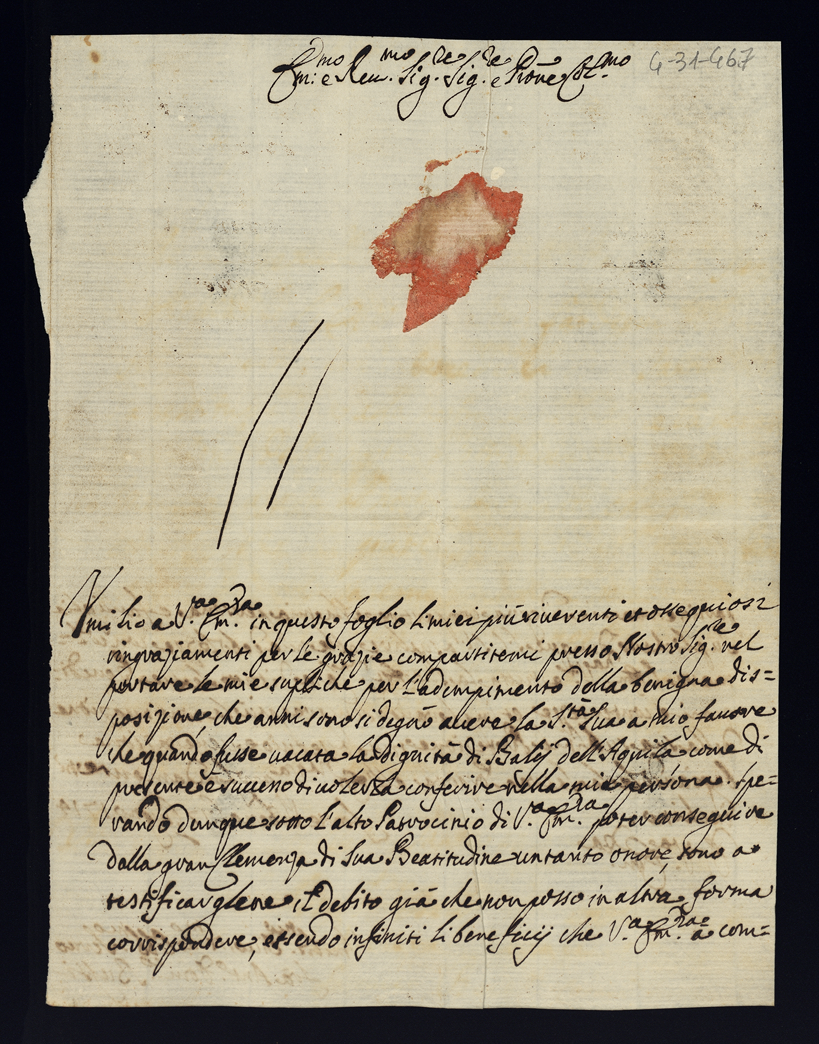 Em.mo e Reu.mo Sig.re Sig.re e Prōne Col.mo
4-31-467
Vmilio a V.a Em.za in questo foglio li miei più riuerenti et ossequiosi
ringraziamenti per le grazie compartitemi presso Nostro Sig.re nel
portare le mie supliche per l'adempimento della benigna dis=
posizione, che anni sono si degnò auere la S.tà Sua a mio fauore
che quando fusse uacata la dignità di Balij dell'Aquila come di
presente è succeso di uolerla conferire nella mia persona. spe=
rando dunque sotto l'alto Patrocinio di V.a Em.za poter conseguire
dalla gran Clemenza di Sua Beatitudine un tanto onore, sono a
testificarglene il debito già che non posso in altra forma
corrispondere, essendo infiniti li beneficij che V.a Em.za à com=